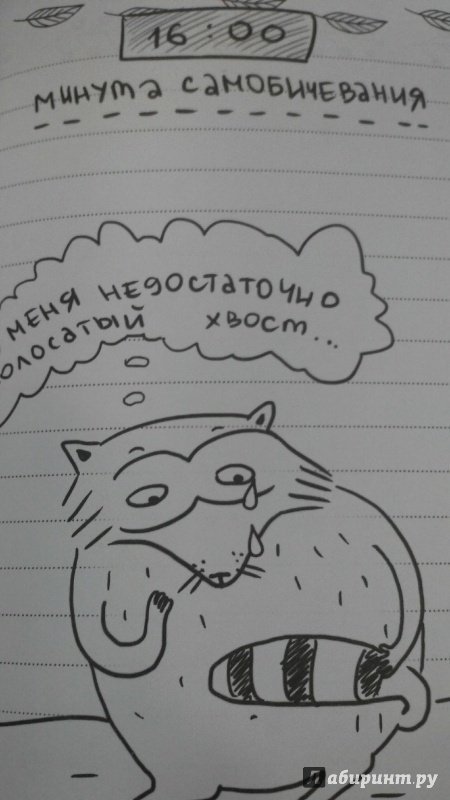 16:00
минута самобичевания
меня недостаточно
олосатый хвост...
Лабиринт.ру